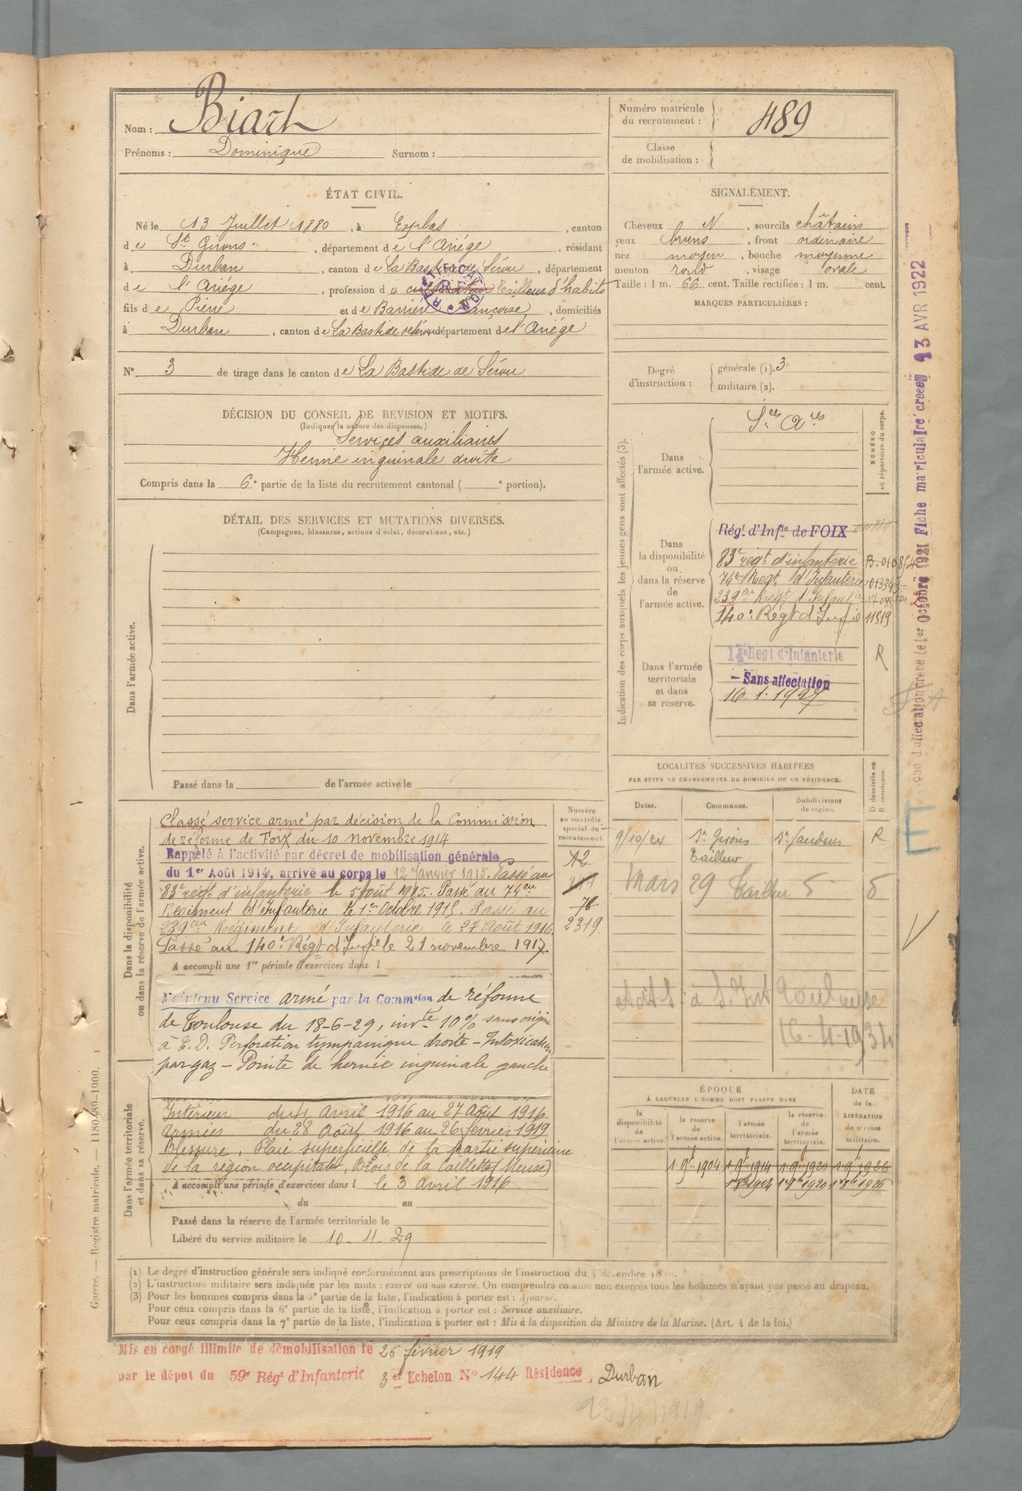 Nom : Biart
Prénoms : Dominique Surnom :
Numéro matricule
du recrutement : 489
Classe
de mobilisation :
ÉTAT CIVIL.
Né le 13 Juillet 1880, à Esplas, canton
de St Girons, département de l'Ariége, résidant
à Durban, canton de La Bastide de Sérou, département
de l'Ariége, profession de Tailleur d'habits
fils de Pierre et de Barrière Françoise, domiciliés
à Durban, canton de La Bastide de Sérou département de l'Ariége
RECTIFICATION
N° 3 de tirage dans le canton de La Bastide de Sérou
DÉCISION DU CONSEIL DE REVISION ET MOTIFS.
(Indiquer la nature des dispenses.)
Services auxiliaires
Hernie inguinale droite
Compris dans la 6e partie de la liste du recrutement cantonal ( e portion).
DÉTAIL DES SERVICES ET MUTATIONS DIVERSES.
(Campagnes, blessures, actions d'éclat, décorations, etc.)
Dans l'armée active.
Passé dans la de l'armée active le
SIGNALEMENT.
Cheveux N, sourcils châtains
yeux bruns, front ordinaire
nez moyen, bouche moyenne
menton rond, visage ovale
Taille : 1 m. 66 cent. Taille rectifiée : 1 m. cent.
MARQUES PARTICULIÈRES :
Degré
d'instruction :
générale (1). 3
militaire (2).
Indication des corps auxquels les jeunes gens sont affectés (3).
NUMÉRO
au répertoire du corps.
Dans
l'armée active.
Sces Ares
Dans
la disponibilité
ou
dans la réserve
de
l'armée active.
Régt d'Infie de FOIX
83e régt d'infanterie
74e Régt d'Infanterie
239e Régt d'Infanterie
140e Régt d'Infie 11519
Dans l'armée
territoriale
et dans
sa réserve.
Régt d'Infanterie R
Sans affectation
16.1.1927
Fiche matriculaire créée 13 AVR 1922
LOCALITÉS SUCCESSIVES HABITÉES
PAR SUITE DE CHANGEMENTS DE DOMICILE OU DE RÉSIDENCE.
D domicile ou
R résidence.
Dates. Communes. Subdivisions
de région.
9/10/24 St Girons St Gaudens R
Tailleur
Mars 29
16-4-1934
Dans la disponibilité
ou dans la réserve de l'armée active.
Numéro
au contrôle
spécial du
recrutement
2319
Classé service armé par décision de la Commission
de réforme de Foix du 10 novembre 1914
Rappelé à l'activité par décret de mobilisation générale
du 1er Août 1914, arrivé au corps le 12 Janvier 1915. Passé au
83e régt d'infanterie le 5 août 1915. Passé au 74eme
Régiment d'Infanterie le 1er Octobre 1915. Passé au
239eme Régiment d'Infanterie le 27 Août 1916
Passé au 140e Régt d'Infie le 21 novembre 1917.
A accompli une 1re période d'exercices dans l
Maintenu Service armé par la Commsion de réforme
de Toulouse du 18-6-29, invté 10% sans origine
à E. D. Perforation tympanique droite – Intoxication
par gaz – Pointe de hernie inguinale gauche
Dans l'armée territoriale
et dans sa réserve.
Intérieur du Avril 1916 au 27 Août 1916
Armées du 28 Août 1916 au 26 février 1919
Blessure, Plaie superficielle de la partie supérieure
de la région occipitale, Bois de la Caillette (Meuse)
A accompli une période d'exercices dans l le 3 Avril 1916
du au
Passé dans la réserve de l'armée territoriale le
Libéré du service militaire le 10-11-29
ÉPOQUE
À LAQUELLE L'HOMME DOIT PASSER DANS
DATE
de la
LIBÉRATION
du service
militaire.
la
disponibilité
de
l'armée active
la réserve
de
l'armée active.
l'armée
territoriale.
la réserve
de
l'armée
territoriale.
(1) Le degré d'instruction générale sera indiqué conformément aux prescriptions de l'instruction du décembre
(2) L'instruction militaire sera indiquée par les mots : exercé ou non exercé. On comprendra comme non exercés tous les hommes n'ayant pas passé au drapeau.
(3) Pour les hommes compris dans la 5e partie de la liste, l'indication à porter est : Ajourné.
Pour ceux compris dans la 6e partie de la liste, l'indication à porter est : Service auxiliaire.
Pour ceux compris dans la 7e partie de la liste, l'indication à porter est : Mis à la disposition du Ministre de la Marine. (Art. 4 de la loi.)
Guerre. — Registre matricule.
Mis en congé illimité de démobilisation le 26 février 1919
par le dépot du 59e Régt d'Infanterie 3e Echelon N° 144 Résidence, Durban